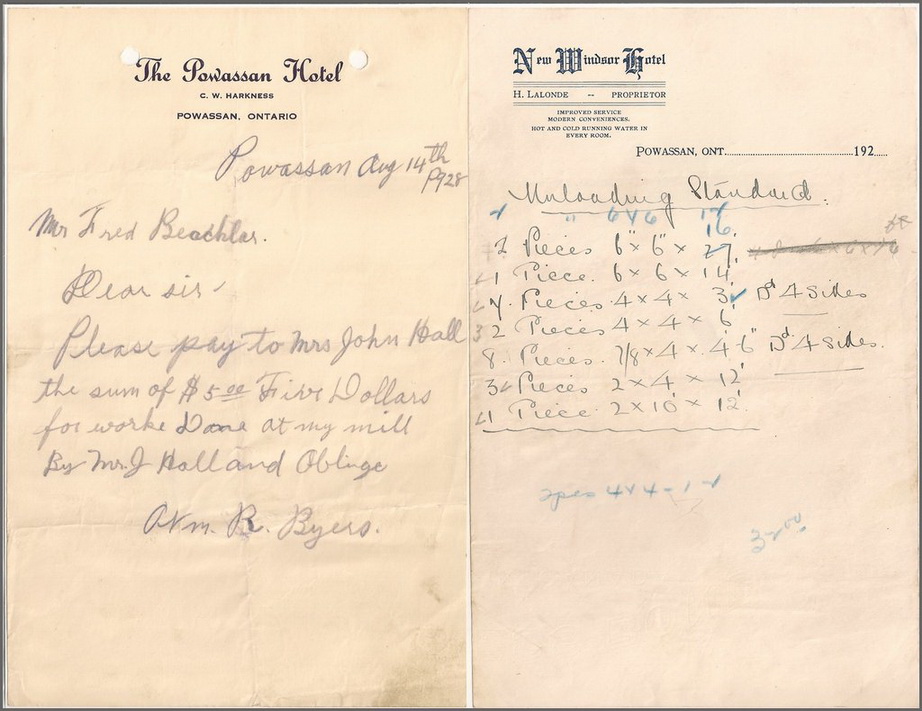 The Powassan Hotel
C. W. HARKNESS
POWASSAN, ONTARIO
Powassan Aug 14th
1928
Mr Fred Beachlar.
Dear sir
Please pay to Mrs John Hall
the sum of $5.00 Five Dollars
for worke Done at my mill
By Mr. J Hall and Oblige
Wm. R. Byers.
New Windsor Hotel
H. LALONDE -- PROPRIETOR
IMPROVED SERVICE
MODERN CONVENIENCES.
HOT AND COLD RUNNING WATER IN
EVERY ROOM.
POWASSAN, ONT. 192
Unloading Standard.
" 6x6 16
2 Pieces 6" 6" × 27,
1 Piece. 6 × 6 × 14'
Pieces 4 × 4 × 3' D'd 4 Sides
2 Pieces 4 × 4 × 6'
8. Pieces. 7/8 × 4 × 4'6" D'd 4 Sides.
3 Pieces 2 × 4 × 12'
1 Piece. 2 × 10 × 12'
2pcs 4x4-1-